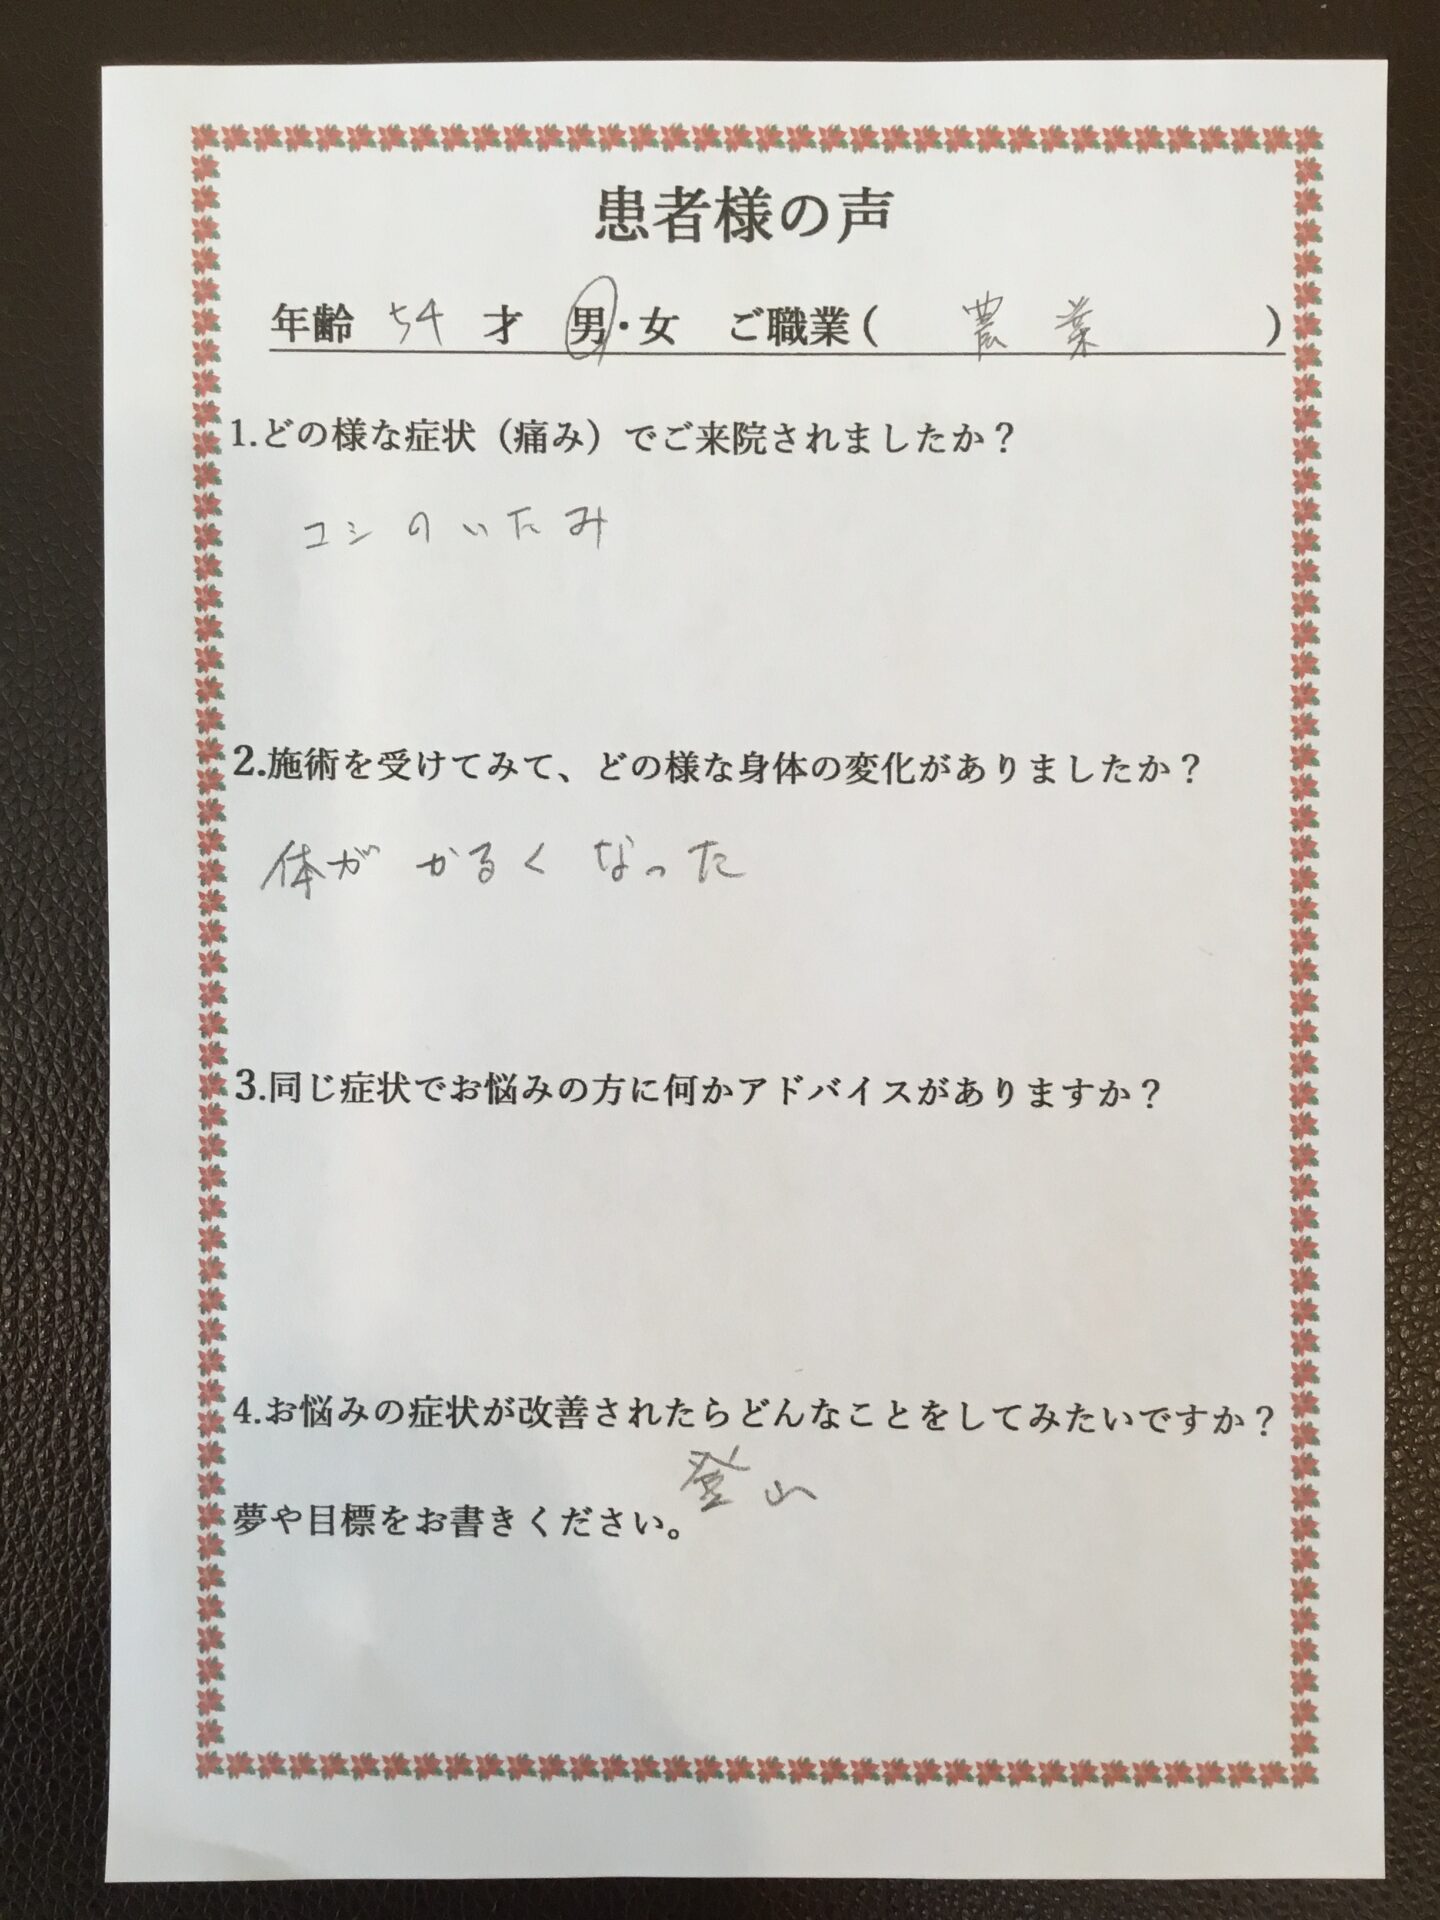 患者様の声
年齢 54 才 男・女 ご職業( 農業 )
1.どの様な症状（痛み）でご来院されましたか？
コシのいたみ
2.施術を受けてみて、どの様な身体の変化がありましたか？
体がかるくなった
3.同じ症状でお悩みの方に何かアドバイスがありますか？
4.お悩みの症状が改善されたらどんなことをしてみたいですか？
登山
夢や目標をお書きください。